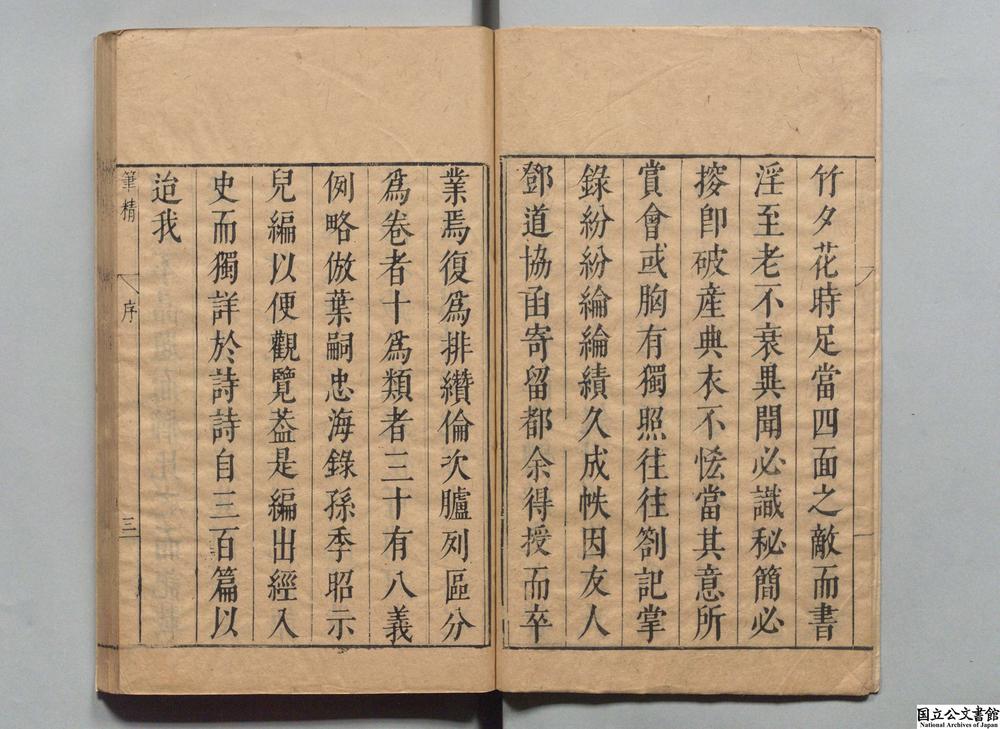 竹夕花時足當四面之敵而書
淫至老不衰異聞必識秘簡必
搜卽破產典衣不恡當其意所
賞會或胸有獨照往往劄記掌
錄紛紛綸綸績久成帙因友人
鄧道協函寄留都余得授而卒
業焉復爲排纘倫次臚列區分
爲卷者十爲類者三十有八義
例略倣葉嗣忠海錄孫季昭示
兒編以便觀覽葢是編出經入
史而獨詳於詩詩自三百篇以
迨我
筆精
序
三
国立公文書館
National Archives of Japan